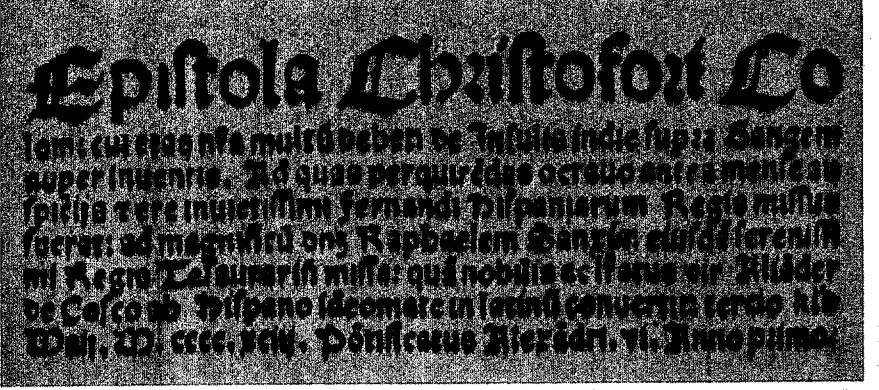 Epiſtola Chriſtofori Co
lom: cui etas nr̃a multũ debet: de Inſulis Indie ſupra Gangem
nuper inuentis. Ad quas perquirẽdas octauo antea menſe au
ſpicijs ⁊ ere inuictiſſimi Fernandi Hiſpaniarum Regis miſſus
fuerat: ad magnificũ dñ3 Raphaelem Sanxis: eiuſdẽ ſereniſſi
mi Regis Teſaurariũ miſſa: quã nobilis ac litteratus vir Aliãder
de Coſco ab Hiſpano ideomate in latinũ conuertit: tercio kĺs
Maij. M. cccc. xciij. Põtificatus Alexãdri. vi. Anno primo: